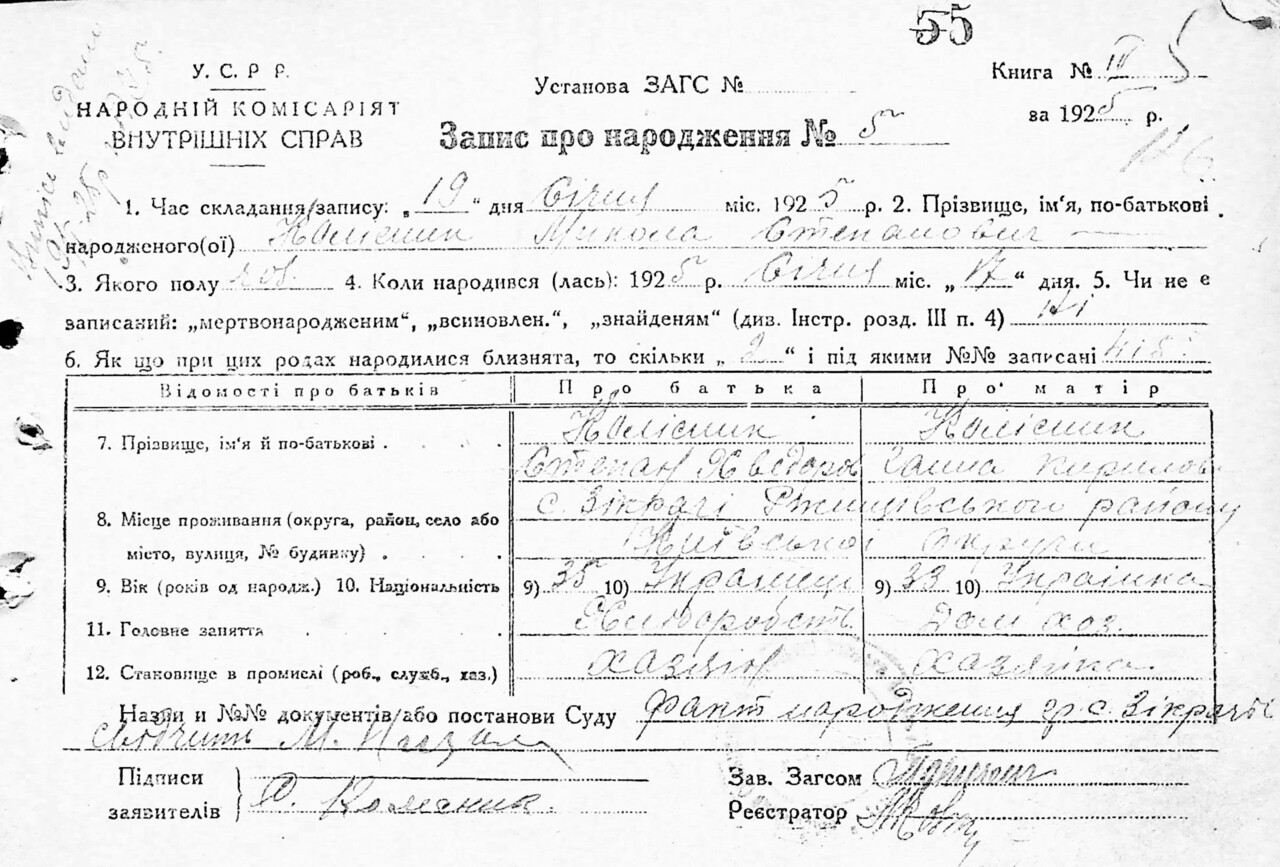 55
У. С. Р Р.
НАРОДНІЙ КОМІСАРІЯТ
ВНУТРІШНІХ СПРАВ
Установа ЗАГС №
Книга № III 5
за 1925 р.
Запис про народження № 5
1. Час складання запису: „19" дня Січня міс. 1925 р. 2. Прізвище, ім'я, по-батькові
народженого(ої) Колісник Микола Степанович
3. Якого полу чол. 4. Коли народився (лась): 1925 р. Січня міс. „17" дня. 5. Чи не є
записаний: „мертвонародженим", „всиновлен.", „знайденям" (див. Інстр. розд. III п. 4) Ні
6. Як що при цих родах народилися близнята, то скільки „2" і під якими №№ записані 4 і 5
Відомості про батьків Про батька Про матір
7. Прізвище, ім'я й по-батькові . . . Колісник Колісник
Степан Хведоров Ганна Кирилов
с. Зікрачі Ржищівського району
8. Місце проживання (округа, район, село або
місто, вулиця, № будинку) . . . . Київської округи
9. Вік (років од народж.) 10. Національність 9) 35 10) Українець 9) 33 10) Українка
11. Головне заняття . . . . Хліборобств Дом хоз.
12. Становище в промислі (роб., служб., хаз.) хазяїн хазяйка
Назви и №№ документів або постанови Суду факт народження гр. с. Зікрачі
свідчить М.
Підписи
заявителів С. Колісник.
Зав. Загсом
Реєстратор